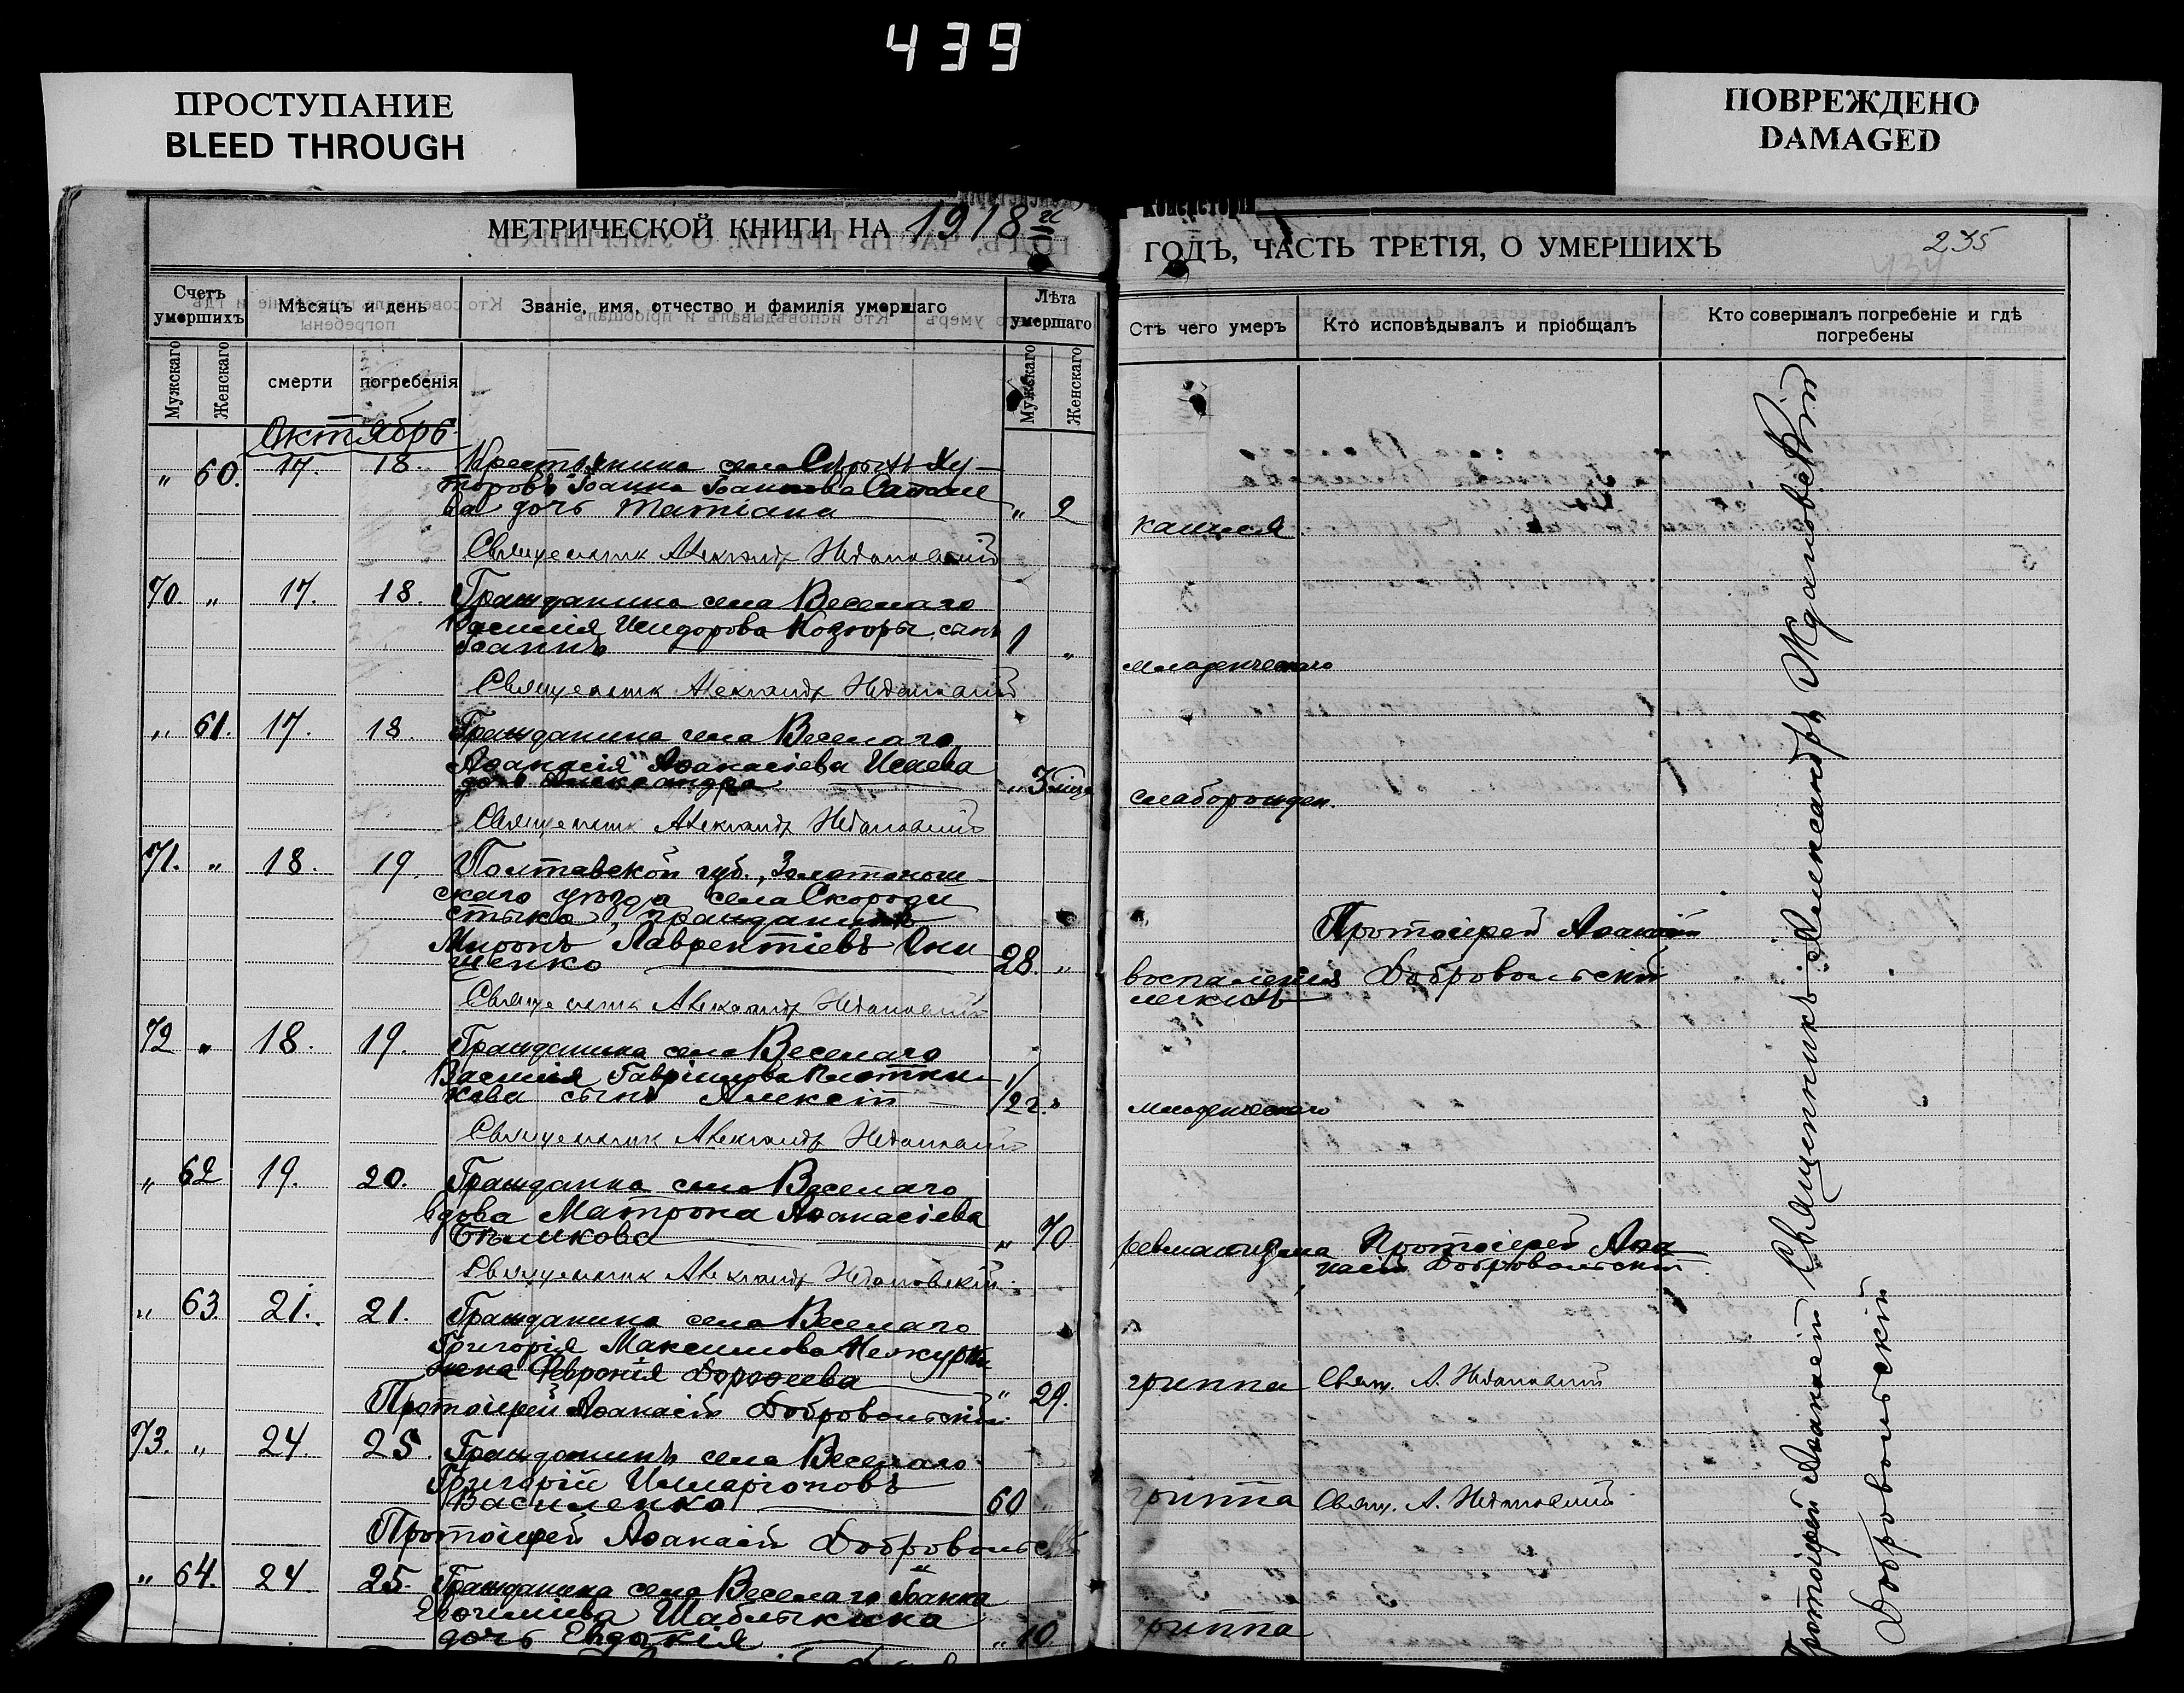 439
ПРОСТУПАНИЕ
BLEED THROUGH
ПОВРЕЖДЕНО
DAMAGED
МЕТРИЧЕСКОЙ КНИГИ НА 1918 й
Счетъ умершихъ
Мѣсяцъ и день
Званіе, имя, отчество и фамилія умершаго
Лѣта умершаго
Мужскаго
Женскаго
смерти
погребенія
Мужскаго
Женскаго
Октябрь
" 60. 17. 18. Крестьянина села Сѣрыхъ Ху-
торовъ Іоанна Іоаннова
ва дочь Татіана " 2
Священникъ Александръ Ждановскій
70. " 17. 18. Гражданина села Веселаго
Василія Исидорова Козюры сынъ
Іоаннъ 1 "
Священникъ Александръ Ждановскій
" 61. 17. 18. Гражданина села Веселаго
Аѳанасія Аѳанасіева Исаева
дочь Александра " 3 мѣс.
Священникъ Александръ Ждановскій
71. " 18. 19. Полтавской губ., Золотонош
скаго уѣзда села Скороди
стыка, гражданинъ
Миронъ Лаврентіевъ Они
щенко 28. "
Священникъ Александръ Ждановскій
72 " 18. 19. Гражданина села Веселаго
Василія Гавріилова Плотни
кова сынъ Алексій 1/2 г. "
Священникъ Александръ Ждановскій
" 62 19. 20. Гражданка села Веселаго
вдова Матрона Аѳанасіева
Бѣликова " 70
Священникъ Александръ Ждановскій
" 63. 21. 21. Гражданина села Веселаго
Григорія Максимова
жена Февронія Дороѳеева " 29.
Протоіерей Аѳанасій Добровольскій
73. " 24. 25. Гражданинъ села Веселаго
Григорій Илларіоновъ
Василенко 60 "
Протоіерей Аѳанасій Добровольскій
" 64. 24. 25. Гражданина села Веселаго Іоанна
Евѳиміева Шаблыкина
дочь Евдокія " 10
Консисторіи
ГОДЪ, ЧАСТЬ ТРЕТІЯ, О УМЕРШИХЪ
235
434
Отъ чего умеръ
Кто исповѣдывалъ и пріобщалъ
Кто совершалъ погребеніе и гдѣ погребены
кашля
младенческаго
слаборожден.
воспаленія легкихъ
Протоіерей Аѳанасій
Добровольскій
младенческаго
ревматизма
Протоіерей Аѳа
насій Добровольскій
гриппа
Свящ. А. Ждановскій
гриппа
Свящ. А. Ждановскій
гриппа
Протоіерей Аѳанасій Священникъ Александръ Ждановскій
Добровольскій